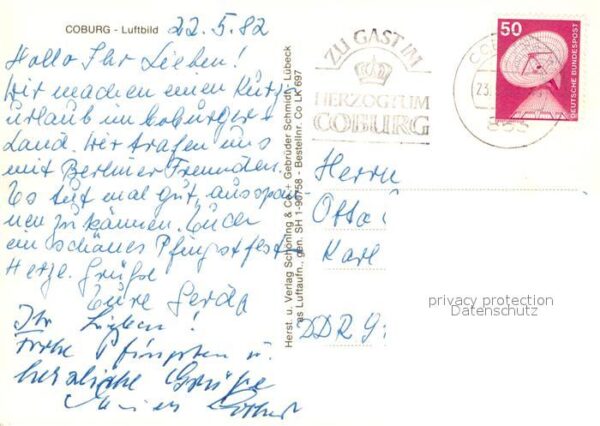 COBURG - Luftbild 22.5.82
Hallo Ihr Lieben!
Wir machen einen Kurz-
urlaub im Coburger-
Land. Wir trafen uns
mit Berliner Freunden.
Es tut mal gut, ausspan-
nen zu können. Euch
ein schönes Pfingstfest
Herzl. Grüße
Eure Gerda
Ihr Lieben!
Frohe Pfingsten u.
herzliche Grüße
Herst. u. Verlag Schöning & Co. + Gebrüder Schmidt, Lübeck
as Luftaufn., gen. SH 1-90758 - Bestellnr. Co LK 697
ZU GAST IM
HERZOGTUM
COBURG
50
DEUTSCHE BUNDESPOST
CO
23.
863
Herrn
Otto
Karl
DDR 9
privacy protection
Datenschutz